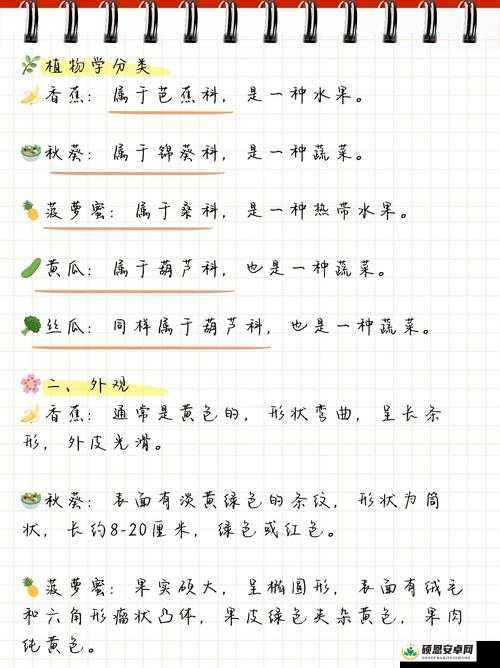 植物学分类
香蕉：属于芭蕉科，是一种水果。
秋葵：属于锦葵科，是一种蔬菜。
菠萝蜜：属于桑科，是一种热带水果。
黄瓜：属于葫芦科，也是一种蔬菜。
丝瓜：同样属于葫芦科，也是一种蔬菜。
二、外观
香蕉：通常是黄色的，形状弯曲，呈长条
形，外皮光滑。
秋葵：表面有淡黄绿色的条纹，形状为筒
状，长约8-20厘米，绿色或红色。
菠萝蜜：果实硕大，呈椭圆形，表面有绒毛
和六角形瘤状凸体，果皮绿色夹杂黄色，果肉
纯黄色。
硕恩安卓网